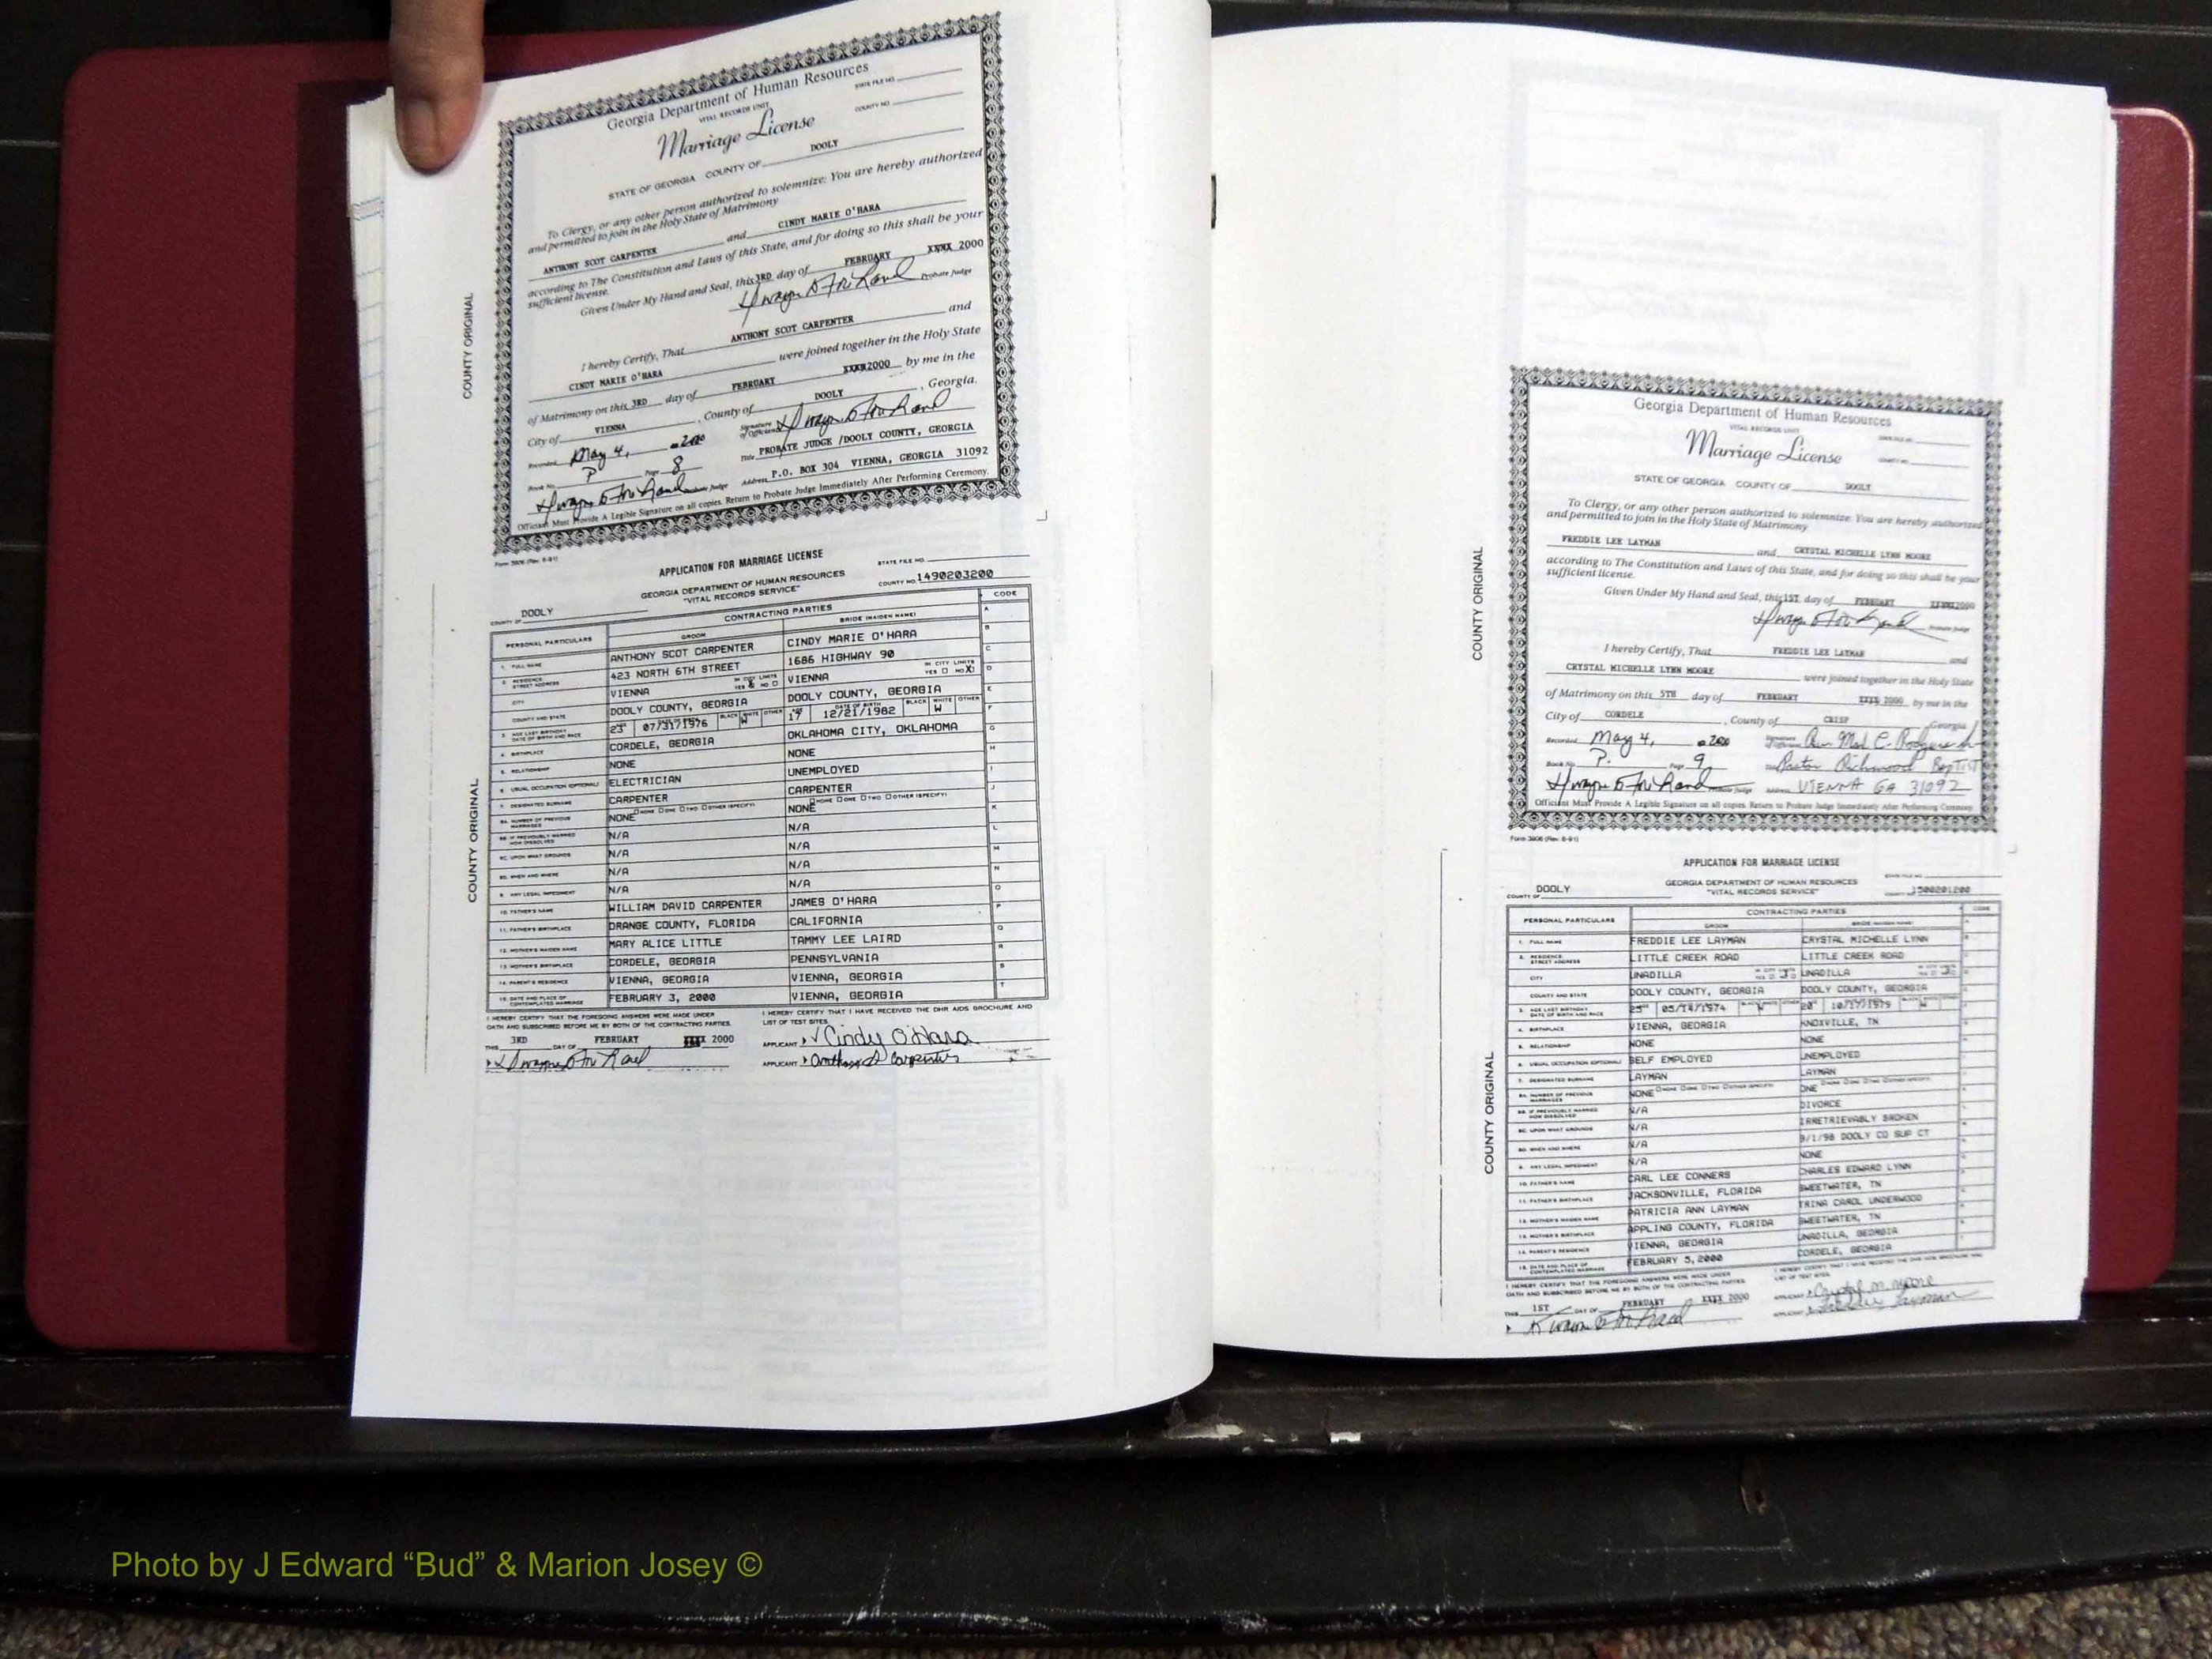 Georgia Department of Human Resources
VITAL RECORDS UNIT
STATE FILE NO.
Marriage License
COUNTY NO.
STATE OF GEORGIA COUNTY OF DOOLY
To Clergy, or any other person authorized to solemnize: You are hereby authorized
and permitted to join in the Holy State of Matrimony
ANTHONY SCOT CARPENTER and CINDY MARIE O'HARA
according to The Constitution and Laws of this State, and for doing so this shall be your
sufficient license.
Given Under My Hand and Seal, this 3RD day of FEBRUARY XXXX 2000
Probate Judge
I hereby Certify, That ANTHONY SCOT CARPENTER and
CINDY MARIE O'HARA were joined together in the Holy State
of Matrimony on this 3RD day of FEBRUARY XXXX 2000 by me in the
City of VIENNA, County of DOOLY, Georgia.
Recorded May 4, 2000 Signature of Official
Book No. P Page 8 Title PROBATE JUDGE /DOOLY COUNTY, GEORGIA
Probate Judge Address P.O. BOX 304 VIENNA, GEORGIA 31092
Officiant Must Provide A Legible Signature on all copies. Return to Probate Judge Immediately After Performing Ceremony.
Form 3906 (Rev. 6-91)
COUNTY ORIGINAL
APPLICATION FOR MARRIAGE LICENSE
STATE FILE NO.
GEORGIA DEPARTMENT OF HUMAN RESOURCES
"VITAL RECORDS SERVICE"
COUNTY NO. 1490203200
COUNTY OF DOOLY
PERSONAL PARTICULARS CONTRACTING PARTIES CODE
GROOM BRIDE (MAIDEN NAME)
1. FULL NAME ANTHONY SCOT CARPENTER CINDY MARIE O'HARA
2. RESIDENCE STREET ADDRESS 423 NORTH 6TH STREET 1686 HIGHWAY 90
CITY VIENNA IN CITY LIMITS YES X NO VIENNA IN CITY LIMITS YES NO X
COUNTY AND STATE DOOLY COUNTY, GEORGIA DOOLY COUNTY, GEORGIA
3. AGE LAST BIRTHDAY DATE OF BIRTH AND RACE 23 07/31/1976 BLACK WHITE W OTHER AGE 17 DATE OF BIRTH 12/21/1982 BLACK WHITE W OTHER
4. BIRTHPLACE CORDELE, GEORGIA OKLAHOMA CITY, OKLAHOMA
5. RELATIONSHIP NONE NONE
6. USUAL OCCUPATION (OPTIONAL) ELECTRICIAN UNEMPLOYED
7. DESIGNATED SURNAME CARPENTER CARPENTER
8A. NUMBER OF PREVIOUS MARRIAGES NONE NONE ONE TWO OTHER (SPECIFY) NONE NONE ONE TWO OTHER (SPECIFY)
8B. IF PREVIOUSLY MARRIED HOW DISSOLVED N/A N/A
8C. UPON WHAT GROUNDS N/A N/A
8D. WHEN AND WHERE N/A N/A
9. ANY LEGAL IMPEDIMENT N/A N/A
10. FATHER'S NAME WILLIAM DAVID CARPENTER JAMES O'HARA
11. FATHER'S BIRTHPLACE ORANGE COUNTY, FLORIDA CALIFORNIA
12. MOTHER'S MAIDEN NAME MARY ALICE LITTLE TAMMY LEE LAIRD
13. MOTHER'S BIRTHPLACE CORDELE, GEORGIA PENNSYLVANIA
14. PARENT'S RESIDENCE VIENNA, GEORGIA VIENNA, GEORGIA
15. DATE AND PLACE OF CONTEMPLATED MARRIAGE FEBRUARY 3, 2000 VIENNA, GEORGIA
I HEREBY CERTIFY THAT THE FOREGOING ANSWERS WERE MADE UNDER
OATH AND SUBSCRIBED BEFORE ME BY BOTH OF THE CONTRACTING PARTIES.
THIS 3RD DAY OF FEBRUARY XXXX 2000
I HEREBY CERTIFY THAT I HAVE RECEIVED THE DHR AIDS BROCHURE AND
LIST OF TEST SITES.
APPLICANT Cindy O'Hara
APPLICANT Anthony S Carpenter
COUNTY ORIGINAL
Georgia Department of Human Resources
VITAL RECORDS UNIT
Marriage License
STATE OF GEORGIA COUNTY OF DOOLY
To Clergy, or any other person authorized to solemnize: You are hereby authorized
and permitted to join in the Holy State of Matrimony
FREDDIE LEE LAYMAN and CRYSTAL MICHELLE LYNN MOORE
according to The Constitution and Laws of this State, and for doing so this shall be your
sufficient license.
Given Under My Hand and Seal, this 1ST day of FEBRUARY XXXX 2000
Probate Judge
I hereby Certify, That FREDDIE LEE LAYMAN and
CRYSTAL MICHELLE LYNN MOORE were joined together in the Holy State
of Matrimony on this 5TH day of FEBRUARY XXXX 2000 by me in the
City of CORDELE, County of CRISP, Georgia
Recorded May 4, 2000 Signature of Official
Book No. P. Page 9 Title Pastor Richwood Baptist
Probate Judge Address VIENNA GA 31092
Officiant Must Provide A Legible Signature on all copies. Return to Probate Judge Immediately After Performing Ceremony
Form 3906 (Rev. 6-91)
COUNTY ORIGINAL
APPLICATION FOR MARRIAGE LICENSE
GEORGIA DEPARTMENT OF HUMAN RESOURCES
"VITAL RECORDS SERVICE"
1500201200
COUNTY OF DOOLY
PERSONAL PARTICULARS CONTRACTING PARTIES CODE
GROOM BRIDE (MAIDEN NAME)
1. FULL NAME FREDDIE LEE LAYMAN CRYSTAL MICHELLE LYNN
2. RESIDENCE STREET ADDRESS LITTLE CREEK ROAD LITTLE CREEK ROAD
CITY UNADILLA UNADILLA
COUNTY AND STATE DOOLY COUNTY, GEORGIA DOOLY COUNTY, GEORGIA
3. AGE LAST BIRTHDAY DATE OF BIRTH AND RACE 25 05/14/1974 W 20 10/17/1979 W
4. BIRTHPLACE VIENNA, GEORGIA KNOXVILLE, TN
5. RELATIONSHIP NONE NONE
6. USUAL OCCUPATION (OPTIONAL) SELF EMPLOYED UNEMPLOYED
7. DESIGNATED SURNAME LAYMAN LAYMAN
8A. NUMBER OF PREVIOUS MARRIAGES NONE ONE
8B. IF PREVIOUSLY MARRIED HOW DISSOLVED N/A DIVORCE
8C. UPON WHAT GROUNDS N/A IRRETRIEVABLY BROKEN
8D. WHEN AND WHERE N/A 9/1/98 DOOLY CO SUP CT
9. ANY LEGAL IMPEDIMENT N/A NONE
10. FATHER'S NAME CARL LEE CONNERS CHARLES EDWARD LYNN
11. FATHER'S BIRTHPLACE JACKSONVILLE, FLORIDA SWEETWATER, TN
12. MOTHER'S MAIDEN NAME PATRICIA ANN LAYMAN TRINA CAROL UNDERWOOD
13. MOTHER'S BIRTHPLACE APPLING COUNTY, FLORIDA SWEETWATER, TN
14. PARENT'S RESIDENCE VIENNA, GEORGIA UNADILLA, GEORGIA
15. DATE AND PLACE OF CONTEMPLATED MARRIAGE FEBRUARY 5, 2000 CORDELE, GEORGIA
I HEREBY CERTIFY THAT THE FOREGOING ANSWERS WERE MADE UNDER
OATH AND SUBSCRIBED BEFORE ME BY BOTH OF THE CONTRACTING PARTIES.
THIS 1ST DAY OF FEBRUARY XXXX 2000
LIST OF TEST SITES.
APPLICANT Crystal M. Moore
APPLICANT Freddie Layman
COUNTY ORIGINAL
Photo by J Edward “Bud” & Marion Josey ©